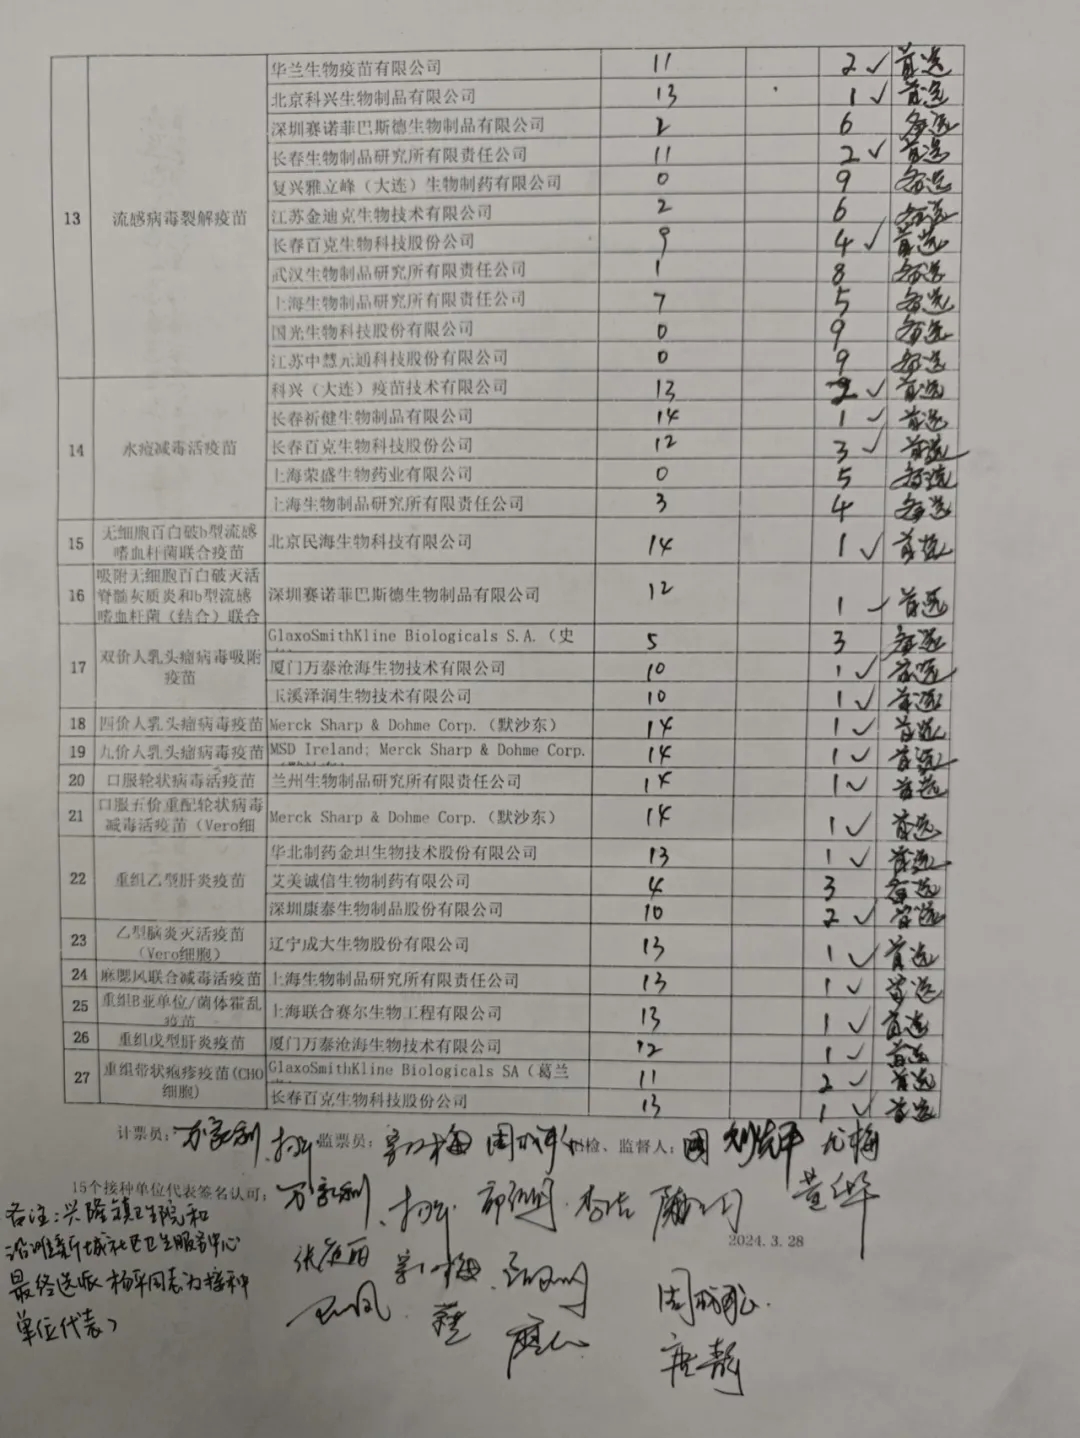 13 流感病毒裂解疫苗
华兰生物疫苗有限公司 11 2 ✓ 首选
北京科兴生物制品有限公司 13 1 ✓ 首选
深圳赛诺菲巴斯德生物制品有限公司 2 6 备选
长春生物制品研究所有限责任公司 11 2 ✓ 首选
复兴雅立峰（大连）生物制药有限公司 0 9 备选
江苏金迪克生物技术有限公司 2 6 备选
长春百克生物科技股份公司 9 4 ✓ 首选
武汉生物制品研究所有限责任公司 1 8 备选
上海生物制品研究所有限责任公司 7 5 备选
国光生物科技股份有限公司 0 9 备选
江苏中慧元通科技股份有限公司 0 9 备选
14 水痘减毒活疫苗
科兴（大连）疫苗技术有限公司 13 2 ✓ 首选
长春祈健生物制品有限公司 14 1 ✓ 首选
长春百克生物科技股份公司 12 3 ✓ 首选
上海荣盛生物药业有限公司 0 5 备选
上海生物制品研究所有限责任公司 3 4 备选
15 无细胞百白破b型流感
嗜血杆菌联合疫苗
北京民海生物科技有限公司 14 1 ✓ 首选
16 吸附无细胞百白破灭活
脊髓灰质炎和b型流感
嗜血杆菌（结合）联合
深圳赛诺菲巴斯德生物制品有限公司 12 1 ✓ 首选
17 双价人乳头瘤病毒吸附
疫苗
GlaxoSmithKline Biologicals S.A.（史 5 3 备选
厦门万泰沧海生物技术有限公司 10 1 ✓ 首选
玉溪泽润生物技术有限公司 10 1 ✓ 首选
18 四价人乳头瘤病毒疫苗 Merck Sharp & Dohme Corp.（默沙东） 14 1 ✓ 首选
19 九价人乳头瘤病毒疫苗 MSD Ireland; Merck Sharp & Dohme Corp. 14 1 ✓ 首选
20 口服轮状病毒活疫苗 兰州生物制品研究所有限责任公司 14 1 ✓ 首选
21 口服五价重配轮状病毒
减毒活疫苗（Vero细
Merck Sharp & Dohme Corp.（默沙东） 14 1 ✓ 首选
22 重组乙型肝炎疫苗
华北制药金坦生物技术股份有限公司 13 1 ✓ 首选
艾美诚信生物制药有限公司 4 3 备选
深圳康泰生物制品股份有限公司 10 2 ✓ 首选
23 乙型脑炎灭活疫苗
（Vero细胞）
辽宁成大生物股份有限公司 13 1 ✓ 首选
24 麻腮风联合减毒活疫苗 上海生物制品研究所有限责任公司 13 1 ✓ 首选
25 重组B亚单位/菌体霍乱
疫苗
上海联合赛尔生物工程有限公司 13 1 ✓ 首选
26 重组戊型肝炎疫苗 厦门万泰沧海生物技术有限公司 12 1 ✓ 首选
27 重组带状疱疹疫苗(CHO
细胞)
GlaxoSmithKline Biologicals SA（葛兰 11 2 ✓ 首选
长春百克生物科技股份公司 13 1 ✓ 首选
计票员： 监票员： 检、监督人： 尤梅
15个接种单位代表签名认可：
2024.3.28
备注：兴隆镇卫生院和
新城社区卫生服务中心
最终选派杨军同志为接种
单位代表
唐静